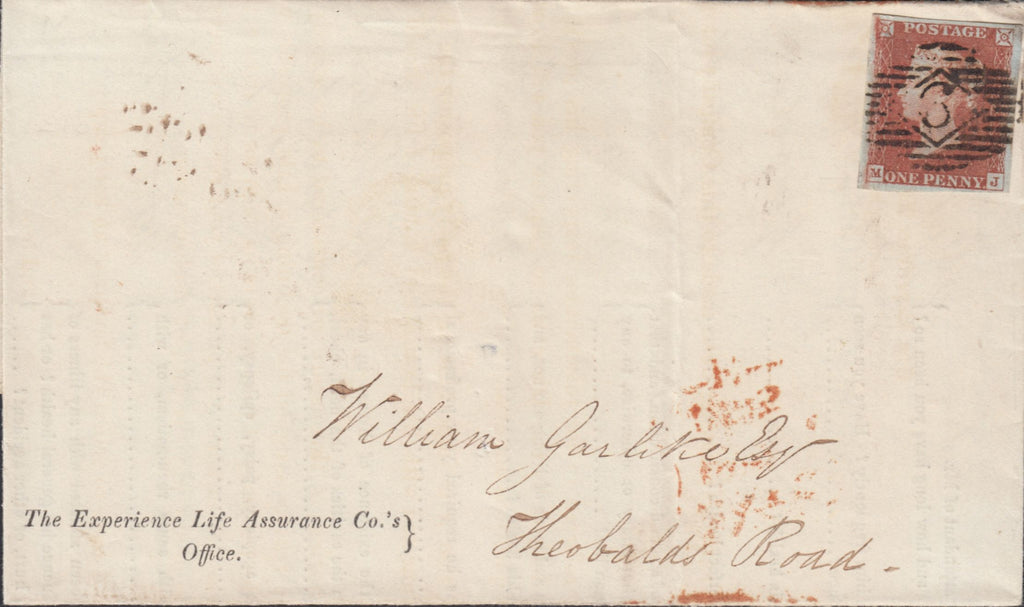 POSTAGE
M ONE PENNY J
William Garlike Esqr
Theobalds Road.
The Experience Life Assurance Co.'s }
Office.